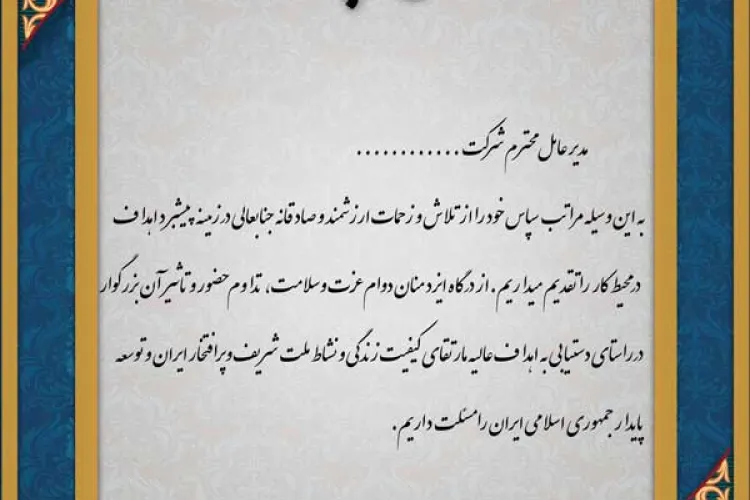 مدیر عامل محترم شرکت............
به این وسیله مراتب سپاس خود را از تلاش و زحمات ارزشمند و صادقانه جنابعالی در زمینه پیشبرد اهداف
در محیط کار را تقدیم میداریم. از درگاه ایزد منان دوام عزت و سلامت، تداوم حضور و تاثیر آن بزرگوار
در راستای دستیابی به اهداف عالیه ما، ارتقای کیفیت زندگی و نشاط ملت شریف و پرافتخار ایران و توسعه
پایدار جمهوری اسلامی ایران را مسئلت داریم.